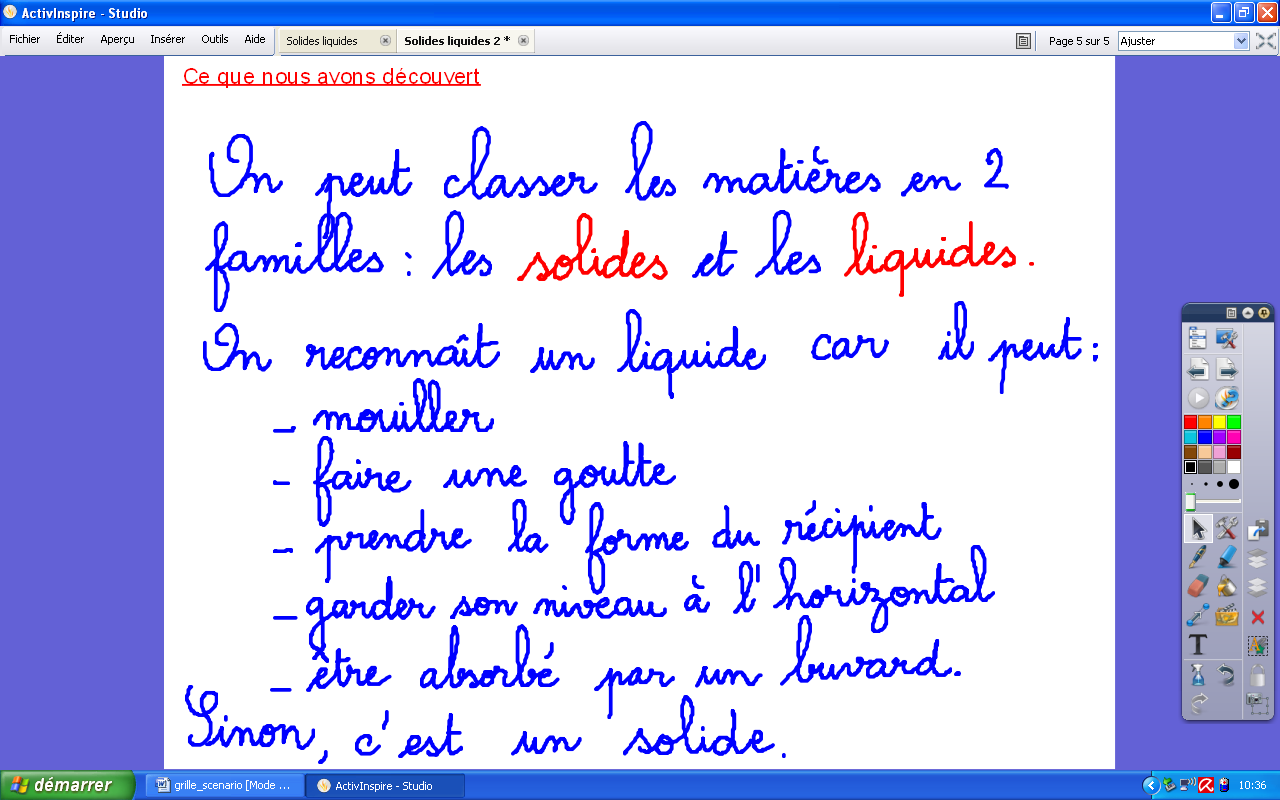 ActivInspire - Studio
Fichier Éditer Aperçu Insérer Outils Aide Solides liquides Solides liquides 2 * Page 5 sur 5 Ajuster
Ce que nous avons découvert
On peut classer les matières en 2
familles : les solides et les liquides.
On reconnaît un liquide car il peut :
- mouiller
- faire une goutte
- prendre la forme du récipient
- garder son niveau à l'horizontal
- être absorbé par un buvard.
Sinon, c'est un solide.
démarrer grille_scenario [Mode ... ActivInspire - Studio 10:36